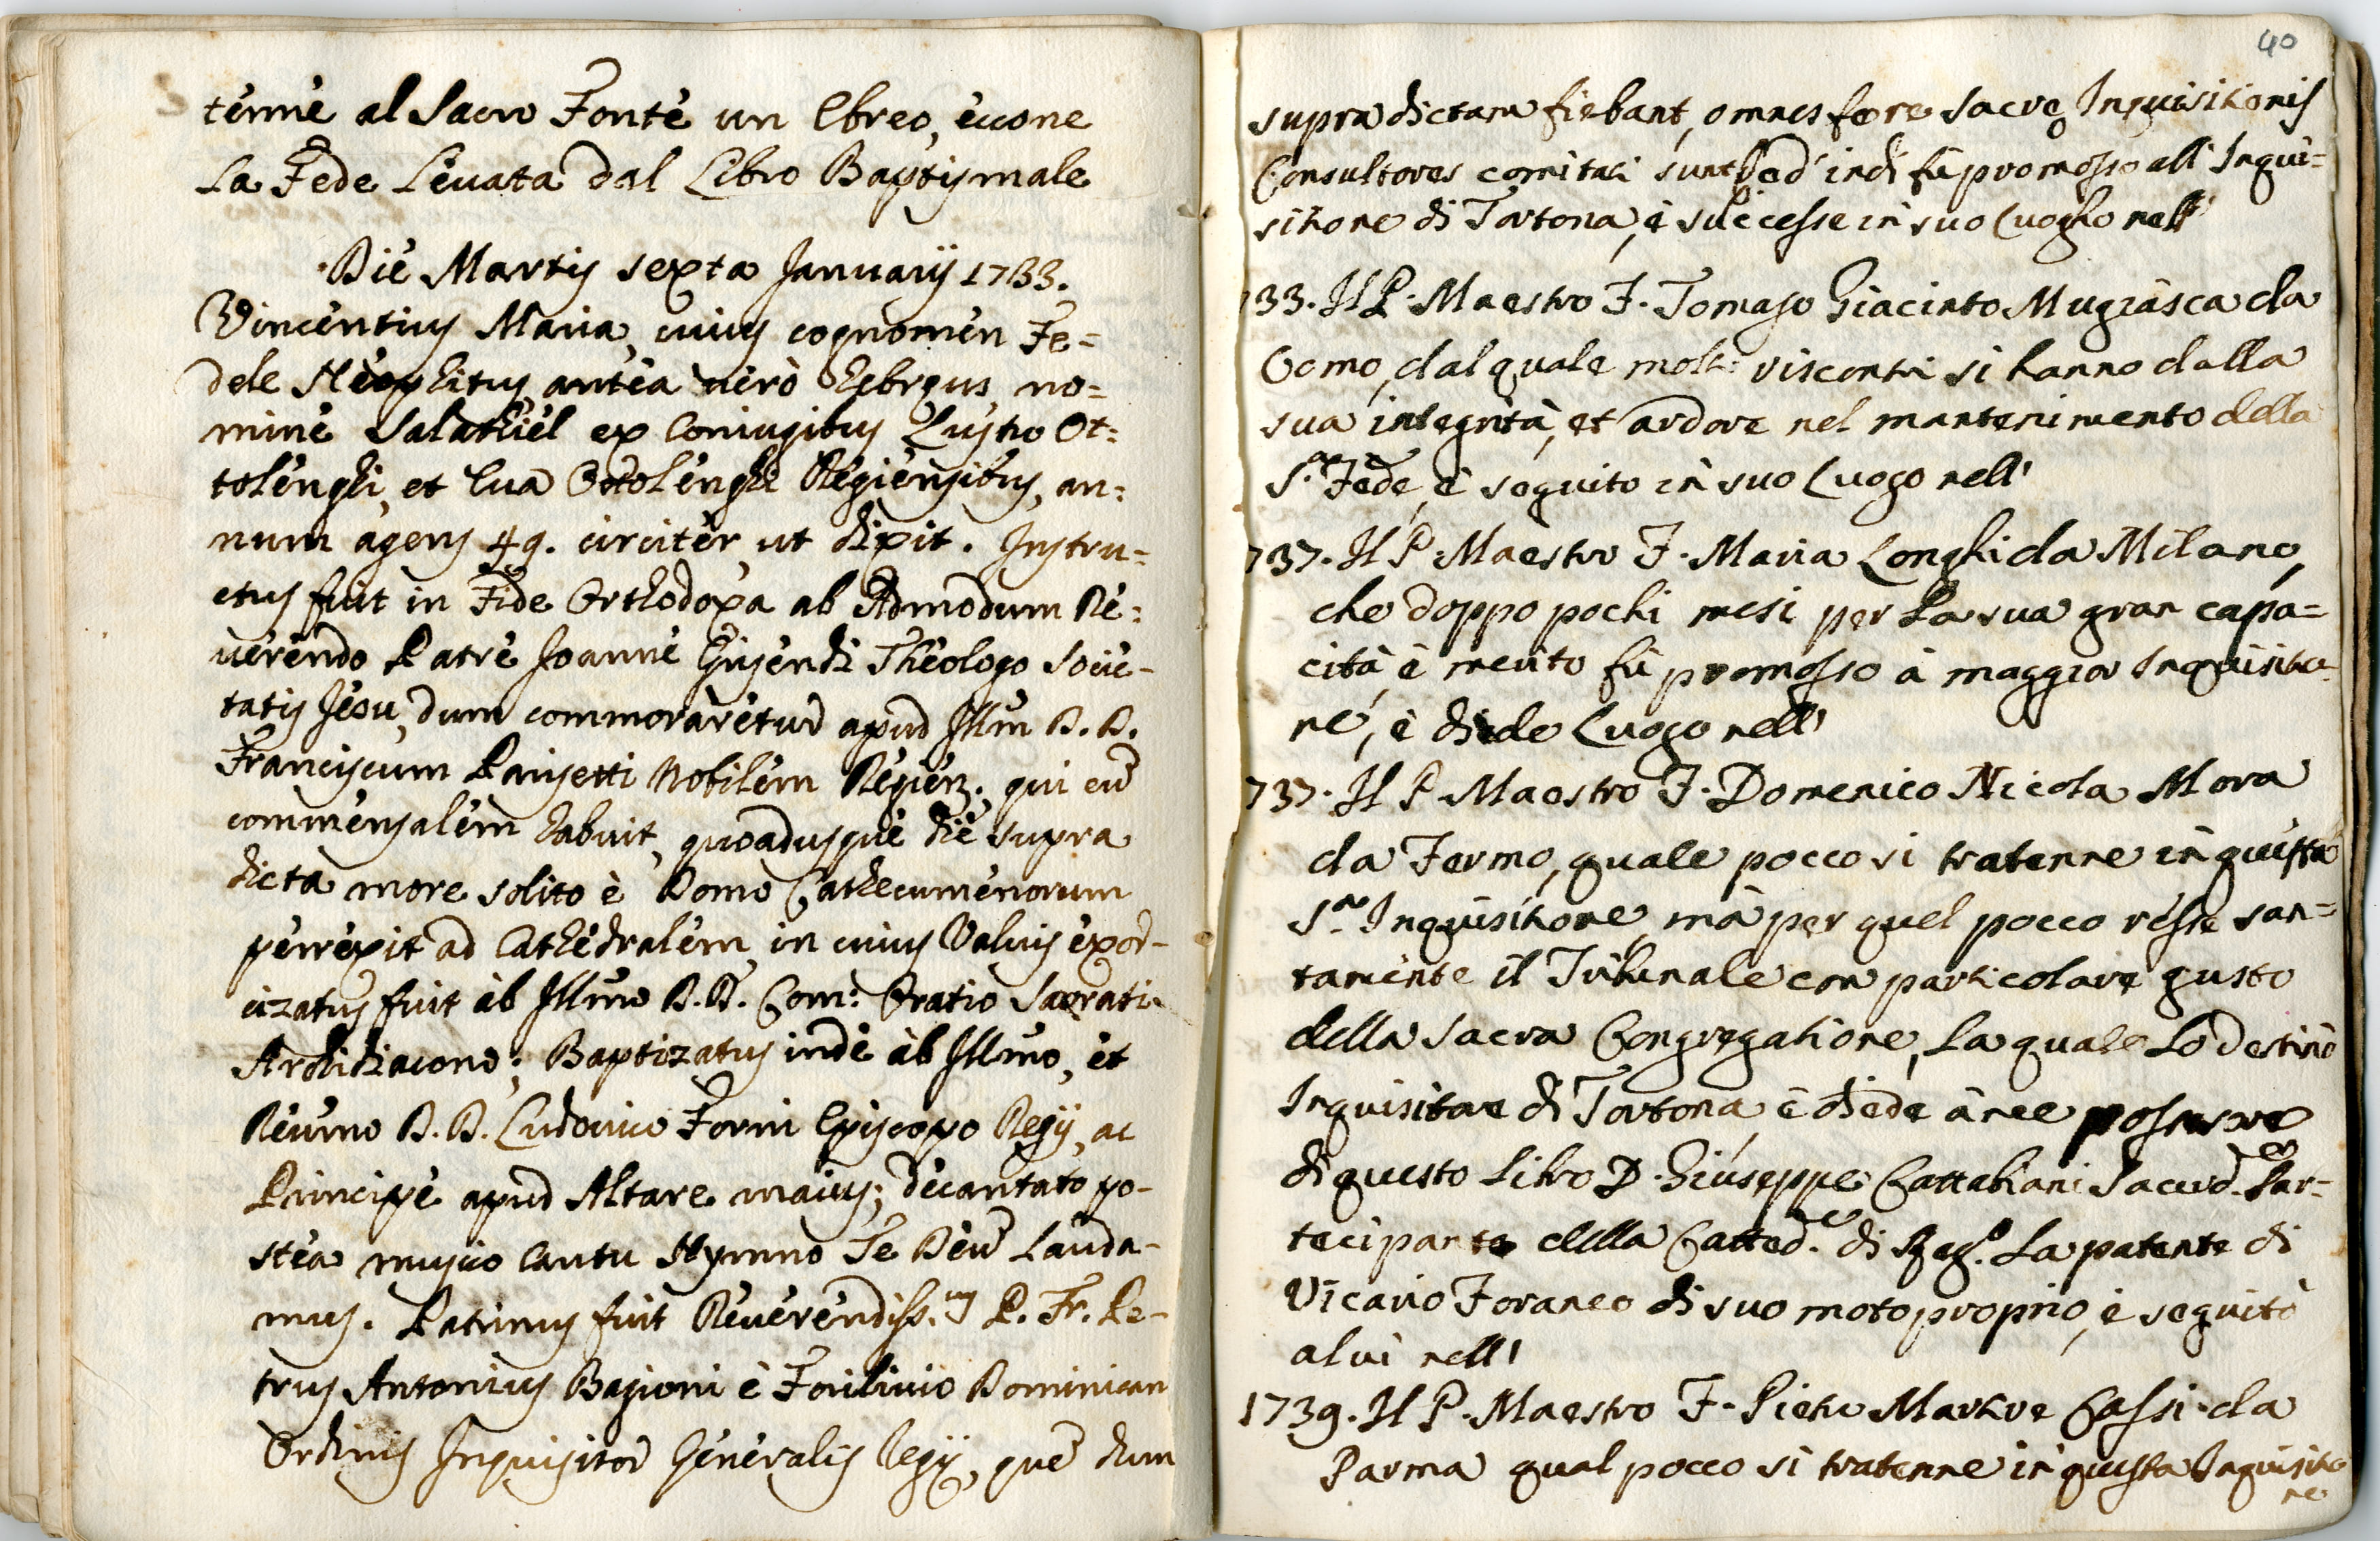 tenne al Sacro Fonte un Ebreo, eccone
La Fede Levata dal Libro Baptismale
Die Martis sexta Januarij 1733.
Vincentius Maria, cuius cognomen Fe=
dele Neophitus, antea verò Hebreus, no=
mine Salathiel ex Coniugibus Lustro Ot=
tolenghi, et Eva Ottolenghi Regiensibus, an=
num agens 49. circiter, ut dixit. Instru=
ctus fuit in Fide Orthodoxa ab Admodum Re=
verendo Patre Joanne Ghisendi Theologo Socie-
tatis Jesu, dum commoraretur apud Illm D. D.
Franciscum Parisetti Nobilem Regien. qui eū
commensalem habuit, quoadusque die supra
dicta more solito è Domo Cathecumenorum
perrexit ad Cathedralem, in cuius Valvis exor-
cizatus fuit ab Illmo D. D. Com: Oratio Sacrati
Archidiacono; Baptizatus inde ab Illmo, et
Reumo D. D. Ludovico Forni Episcopo Regij, ac
Principe apud Altare maius; decantato po-
stea musico Cantu Hymno Te Deū Lauda-
mus. Patrinus fuit Reverendiss.us P. Fr. Pe-
trus Antonius Bagioni è Forilivio Dominican
Ordinis Inquisitor Generalis Regij, que dum
40
supradictam fiebant, omnes fere Sacre Inquisitionis
Consultores comitati sunt. ed indi fù promosso all' Inqui=
sitione di Tortona, è successe in suo Luogho nell'
733. Il P. Maestro F. Tomaso Giacinto Mugiasca da
Como, dal quale molti riscontri si hanno dalla
sua integrità, et ardore nel mantenimento della
S.ta Fede, è seguito in suo Luogo nell'
737. Il P. Maestro F. Maria Longhi da Milano,
che doppo pochi mesi per La sua gran capa=
cità, è merito fù promosso à maggior Inquisitio-
ne, è diede Luogo nell'
737. Il P. Maestro F. Domenico Nicola Mora
da Fermo, quale pocco si tratenne in questa
S.ta Inquisitione, mà per quel pocco resse san=
tamente il Tribunale con particolare gusto
della Sacra Congregatione, La quale Lo destinò
Inquisitore di Tortona, è diede à me possessore
di questo Libro D. Giuseppe Cattabiani Sacerd.e Par=
tecipante della Catted.e di Reg.o La patente di
Vicario Foraneo di suo moto proprio, è seguitò
a lui nell'
1739. Il P. Maestro F. Pietro Martire Cassi da
Parma qual pocco si tratenne in questa Inquisitio
ne